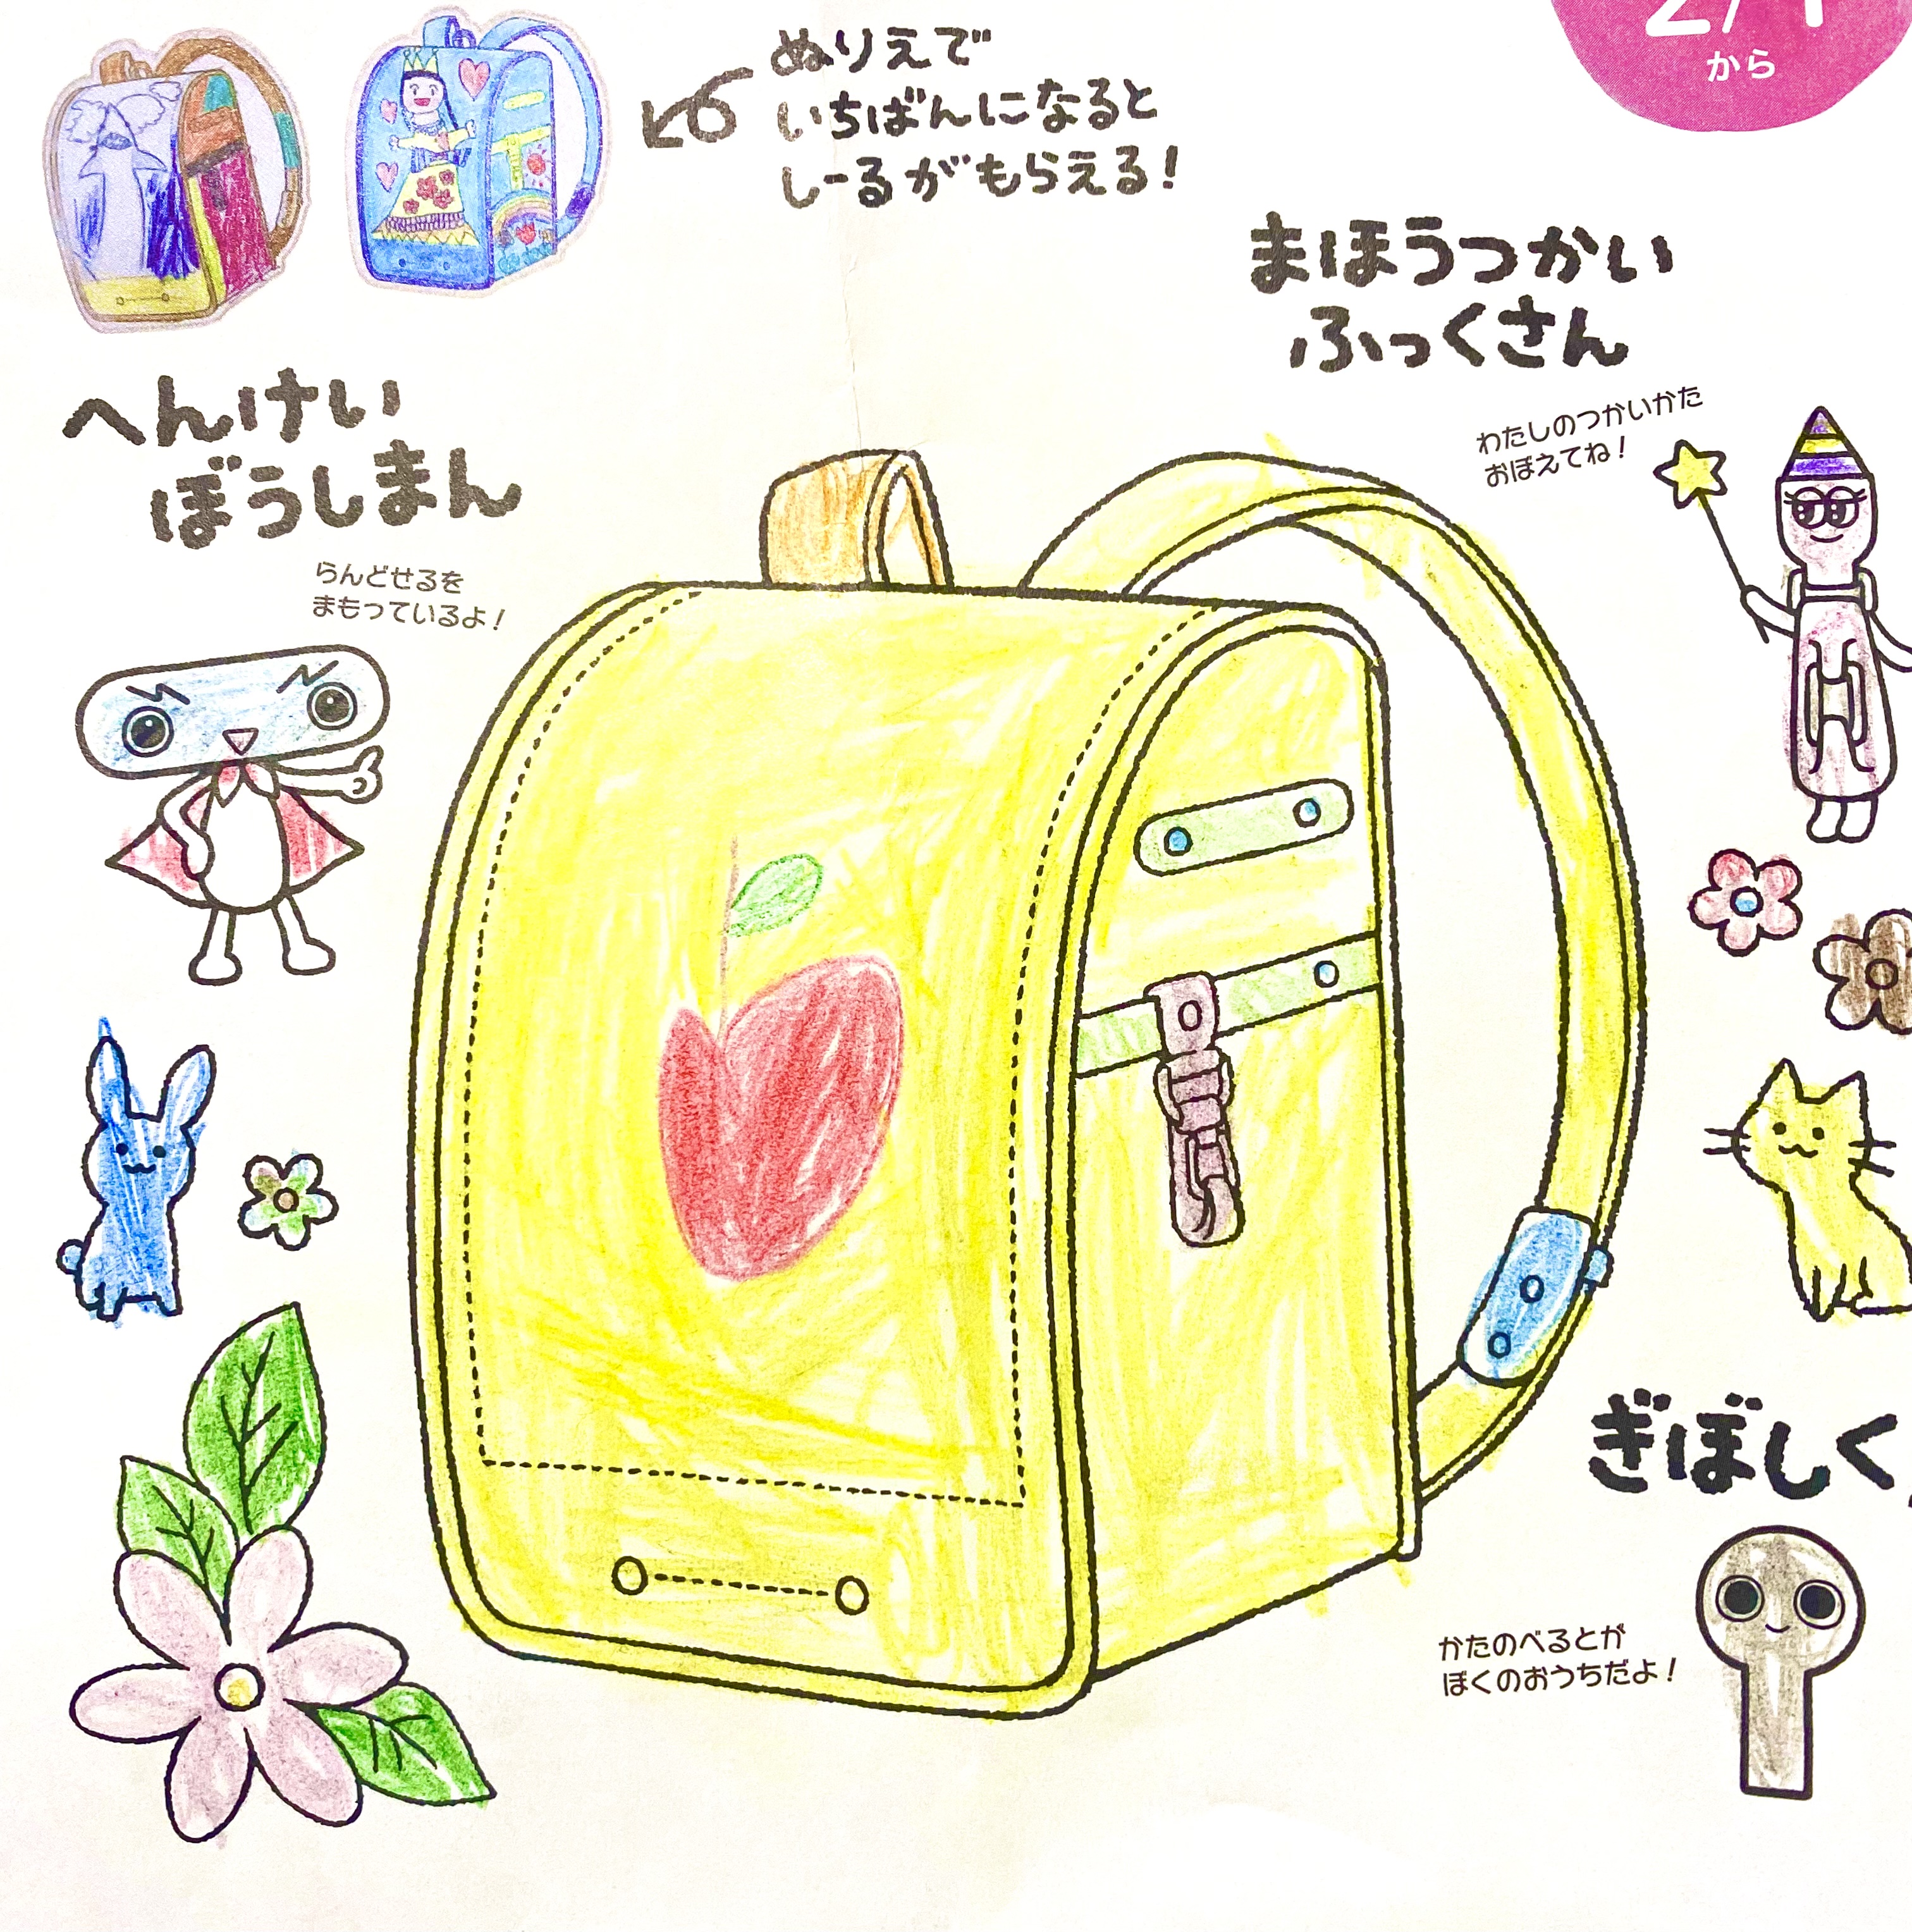 ぬりえで
いちばんになると
しーるがもらえる!
から
まほうつかい
ふっくさん
わたしのつかいかた
おぼえてね!
へんけい
ぼうしまん
らんどせるを
まもっているよ!
ぎぼしく
かたのべるとが
ぼくのおうちだよ!